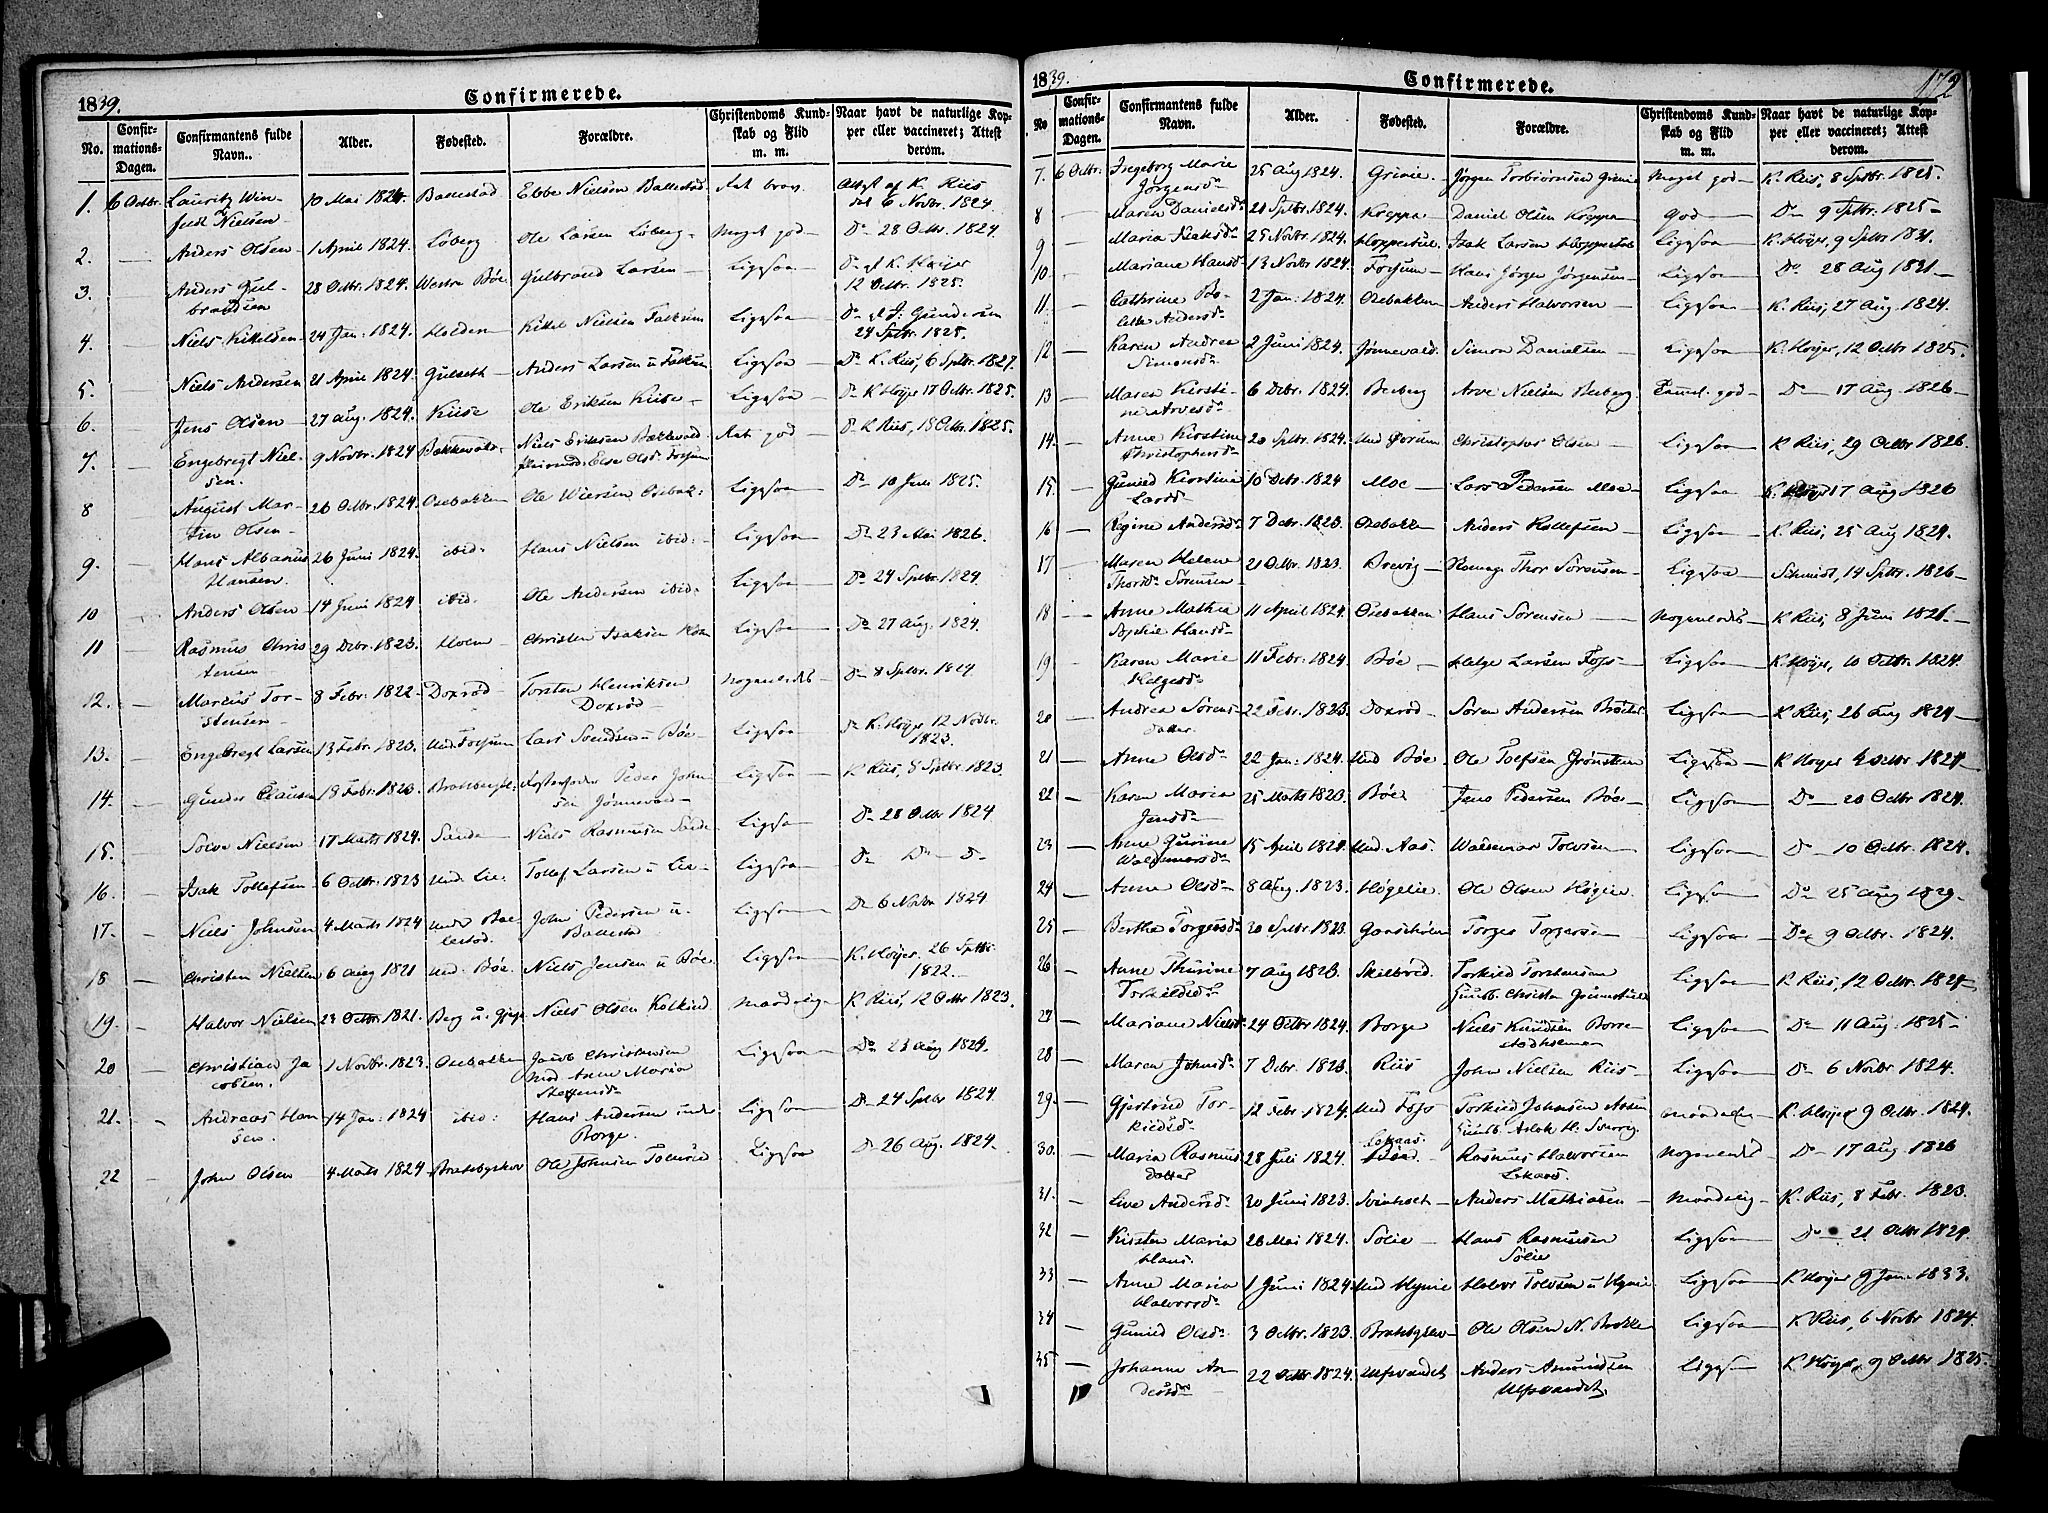 1839. Confirmerede.
No. Confirmations-Dagen. Confirmantens fulde Navn. Alder. Fødested. Forældre. Christendoms Kundskab og Flid m. m. Naar havt de naturlige Kopper eller vaccineret; Attest derom.
1. 6 Octbr. Lauritz Win- 10 Mai 1824. Ballestad Ebbe Nielsen Ballestad Attest af K. Riis
Nielsen det 6 Novbr. 1824
2. — Anders Olsen 1 April 1824. Løberg Ole Larsen Løberg Meget god D° 28 Octbr. 1824.
3. — Anders Gul- 28 Octbr. 1824. Westre Böe Gulbrand Larsen Ligesaa D° af K. Høyer
brandsen 12 Octbr. 1825.
4. — Niels Kittelsen 24 Jan: 1824. Holden Kittel Nielsen Ligesaa D° af
24 Sptbr. 1825.
5. Niels Andersen 21 April 1824. Gulseth Anders Larsen Ligesaa D° K. Riis, 6 Sptbr. 1827.
6. Jens Olsen 27 Aug. 1824. Kiise Ole Eriksen Kiise Ligesaa D° K Høyer 17 Octbr. 1825.
7. Engebregt Niel- 9 Novbr. 1824 Bakkevold Niels Eriksen Bakkevold god D° K Riis, 18 Octbr. 1825.
sen. Else Olsd.
8 August Mar- 26 Octbr. 1824 Osebakken Ole Osebak: Ligesaa D° 10 1825.
tin Olsen
9. Hans Albanus 26 Juni 1824. ibid: Hans Nielsen ibid: Ligesaa D° 23 Mai 1826.
Hansen.
10 Anders Olsen 14 Juni 1824 ibid. Ole Andersen ibid: Ligesaa D° 24 Sptbr. 1824.
11 Rasmus Chris 29 Debr. 1823. Holm Christen Isaksen Ligesaa D° 27 Aug. 1824.
tensen
12. — Marcus Tor- 8 Febr: 1822 Doxrød Torsten Henriksen Nogenledes D° 8 Sptbr. 1824
stensen Doxrød
13. — Engebregt Larsen 13 Febr. 1823. Und. Larsen Lars Svendsen u Böe Ligesaa D° K. Høyer 12 Novbr.
1823.
14. — Gunder Clausen 18 Febr: 1823 Fosterfader Peder John Ligesaa K. Riis, 8 Sptbr. 1823.
sen Jønnevald
15. — Nielsen 17 Marts 1824. Sande Niels Rasmusen Ligesaa D° 28 Octbr 1824
16. — Isak Tollefsen 6 Octbr. 1823 Und. Lie Tollef Larsen u Lie Ligesaa D° D° D
17. — Niels Johnsen 4 Marts 1824 Under Bal John Pedersen u. Ligesaa D° 6 Novbr 1824
lestad. Ballestad
18 — Christen Nielsen 6 Aug 1821 Und. Böe. Niels Jensen u Böe. Ligesaa K. Høyer, 26 Sptbr:
1822.
19. — Halvor Nielsen 23 Octbr. 1821. Berg u. Niels Olsen Maadelig K Riis, 12 Octbr 1823.
20 — Christian Ja 1 Novbr. 1823 Osebakken Jacob Christensen Ligesaa D° 23 Aug 1824.
cobsen. med Anne Maria
Steffensd.
21. — Andreas Han 14 Jan: 1824 ibid: Hans Andersen under Ligesaa D° 24 Sptbr 1824
sen. Borge.
22 — John Olsen 4 Marts 1824 Ole Johnsen Ligesaa D° 26 Aug. 1824.
1839. Confirmerede. 172
No Confirmations-Dagen. Confirmantens fulde Navn. Alder. Fødested. Forældre. Christendoms Kundskab og Flid m. m. Naar havt de naturlige Kopper eller vaccineret; Attest derom.
7. 6 Octbr. Ingeborg Marie 25 Aug 1824. Grinie Jørgen Torbiørnsen Grinie Meget god K. Riis, 8 Sptbr. 1825.
Jørgensd.
8 — Maren Danielsd. 21 Sptbr. 1824. Kreppa Daniel Olsen Kreppa God D° 9 Sptbr. 1825
9 — Maria Isaksd. 25 Novbr. 1824. Isak Larsen Ligesaa K. Høyer, 9 Sptbr 1831.
10. — Mariane Hansd. 13 Novbr 1824. Hans Jørgen Jørgensen Ligesaa D° 28 Aug 1831
11. — Cathrine Bo- 2 Jan: 1824. Osebakken Anders Halvorsen Ligesaa K. Riis, 27 Aug. 1824.
lette Andersd.
12 — Karen Andrea 2 Juni 1824. Jønnevald. Simon Danielsen Ligesaa K. Høyer, 12 Octbr 1825.
Simonsd.
13 — Maren Kirsti- 6 Debr. 1824 Berberg Arve Nielsen Berberg Temmel. god D° 17 Aug. 1826
ne Arvesd.
14. — Anne Kirstine 20 Sptbr. 1824. Und Christopher Olsen Ligesaa K Riis, 29 Octbr 1826
Christophersd.
15. — Gunild Kirstine 10 Debr. 1824 Moe Lars Pedersen Moe Ligesaa K. 17 Aug 1826
Larsd.
16 — Regine Andersd. 7 Debr. 1823. Osebakken Anders Rollefsen Ligesaa K. Riis, 25 Aug 1824.
17 — Maren Helene 21 Octbr. 1823. Brevig Thor Sørensen Ligesaa Schmidt, 14 Sptbr. 1826
Thorsd. Sørensen
18 — Anne Mathea 11 April 1824. Osebakken Hans Sørensen Nogenledes K. Riis, 8 Juni 1826.
Sophie Hansd.
19 Karen Marie 11 Febr: 1824. Böe Helge Larsen Ligesaa K. Høyer, 10 Octbr. 1824.
Helgesd.
20 — Andrea Sørens- 22 Octbr. 1823. Doxrød Søren Andersen Ligesaa K Riis, 26 Aug 1824
datter
21 — Anne Olsd. 22 Jan: 1824. Und Böe Ole Toefsen Grønsteen Ligesaa K Høyer 4 Octbr 1824
22 — Karen Maria 25 Marts 1823. Böe Jens Pedersen Böe Ligesaa D° 20 Octbr 1824.
Jensd.
23 — Anne Gurine 15 April 1824. Und. Aas. Waldemar Ligesaa D° 10 Octbr 1824.
Waldemarsd.
24 — Anne Olsd. 8 Aug. 1823. Høgelie. Ole Olsen Høgelie. Ligesaa D° 25 Aug 1829.
25 — Berthe Torgersd. 30 Sptbr 1823. Gaasehølen Torger Torgersen Ligesaa D° 9 Octbr. 1824.
26 — Anne Thurine 7 Aug 1823. Skilbred. Torkild Torstensen Ligesaa K Riis, 12 Octbr 1824
Torkildsd. Christen
27 — Mariane Nielsd. 24 Octbr 1824. Borge Niels Knudsen Borre Ligesaa D° 11 Aug. 1825
stadholmen
28 — Maren Johnsd. 7 Debr. 1823. Riis John Nielsen Riis Ligesaa D° 6 Novbr 1824.
29. — Gjertrud Tor- 12 Febr. 1824. Und Torkild Johnsen Maadelig K. Høyer 9 Octbr. 1824.
kildsd. Aslak H.
30. — Maria Rasmus 28 Juli 1824. Rasmus Halvorsen Nogenledes D° 17 Aug 1826
datter
31. — Live Andersd. 30 Juni 1823. Svinholt Anders Mathiasen Maadelig K. Riis, 8 Febr. 1823.
32 — Kirsten Maria 26 Mai 1824. Sølie Hans Rasmusen Ligesaa D° 21 Octbr 1824.
Hans. Sølie
33 — Anne Maria 1 Juni 1824. Und Halvor Tolvsen u Ligesaa K Høyer 9 Jan: 1833.
Halvorsd.
34 — Gunild Olsd. 3 Octbr. 1823. Ole Olsen N. Bakke Ligesaa K. Riis, 6 Novbr 1824.
35 — Johanne An 22 Octbr 1824. Ulfsvandet Anders Amundsen Ligesaa K. Høyer, 9 Octbr 1825.
dersd. Ulfsvandet.